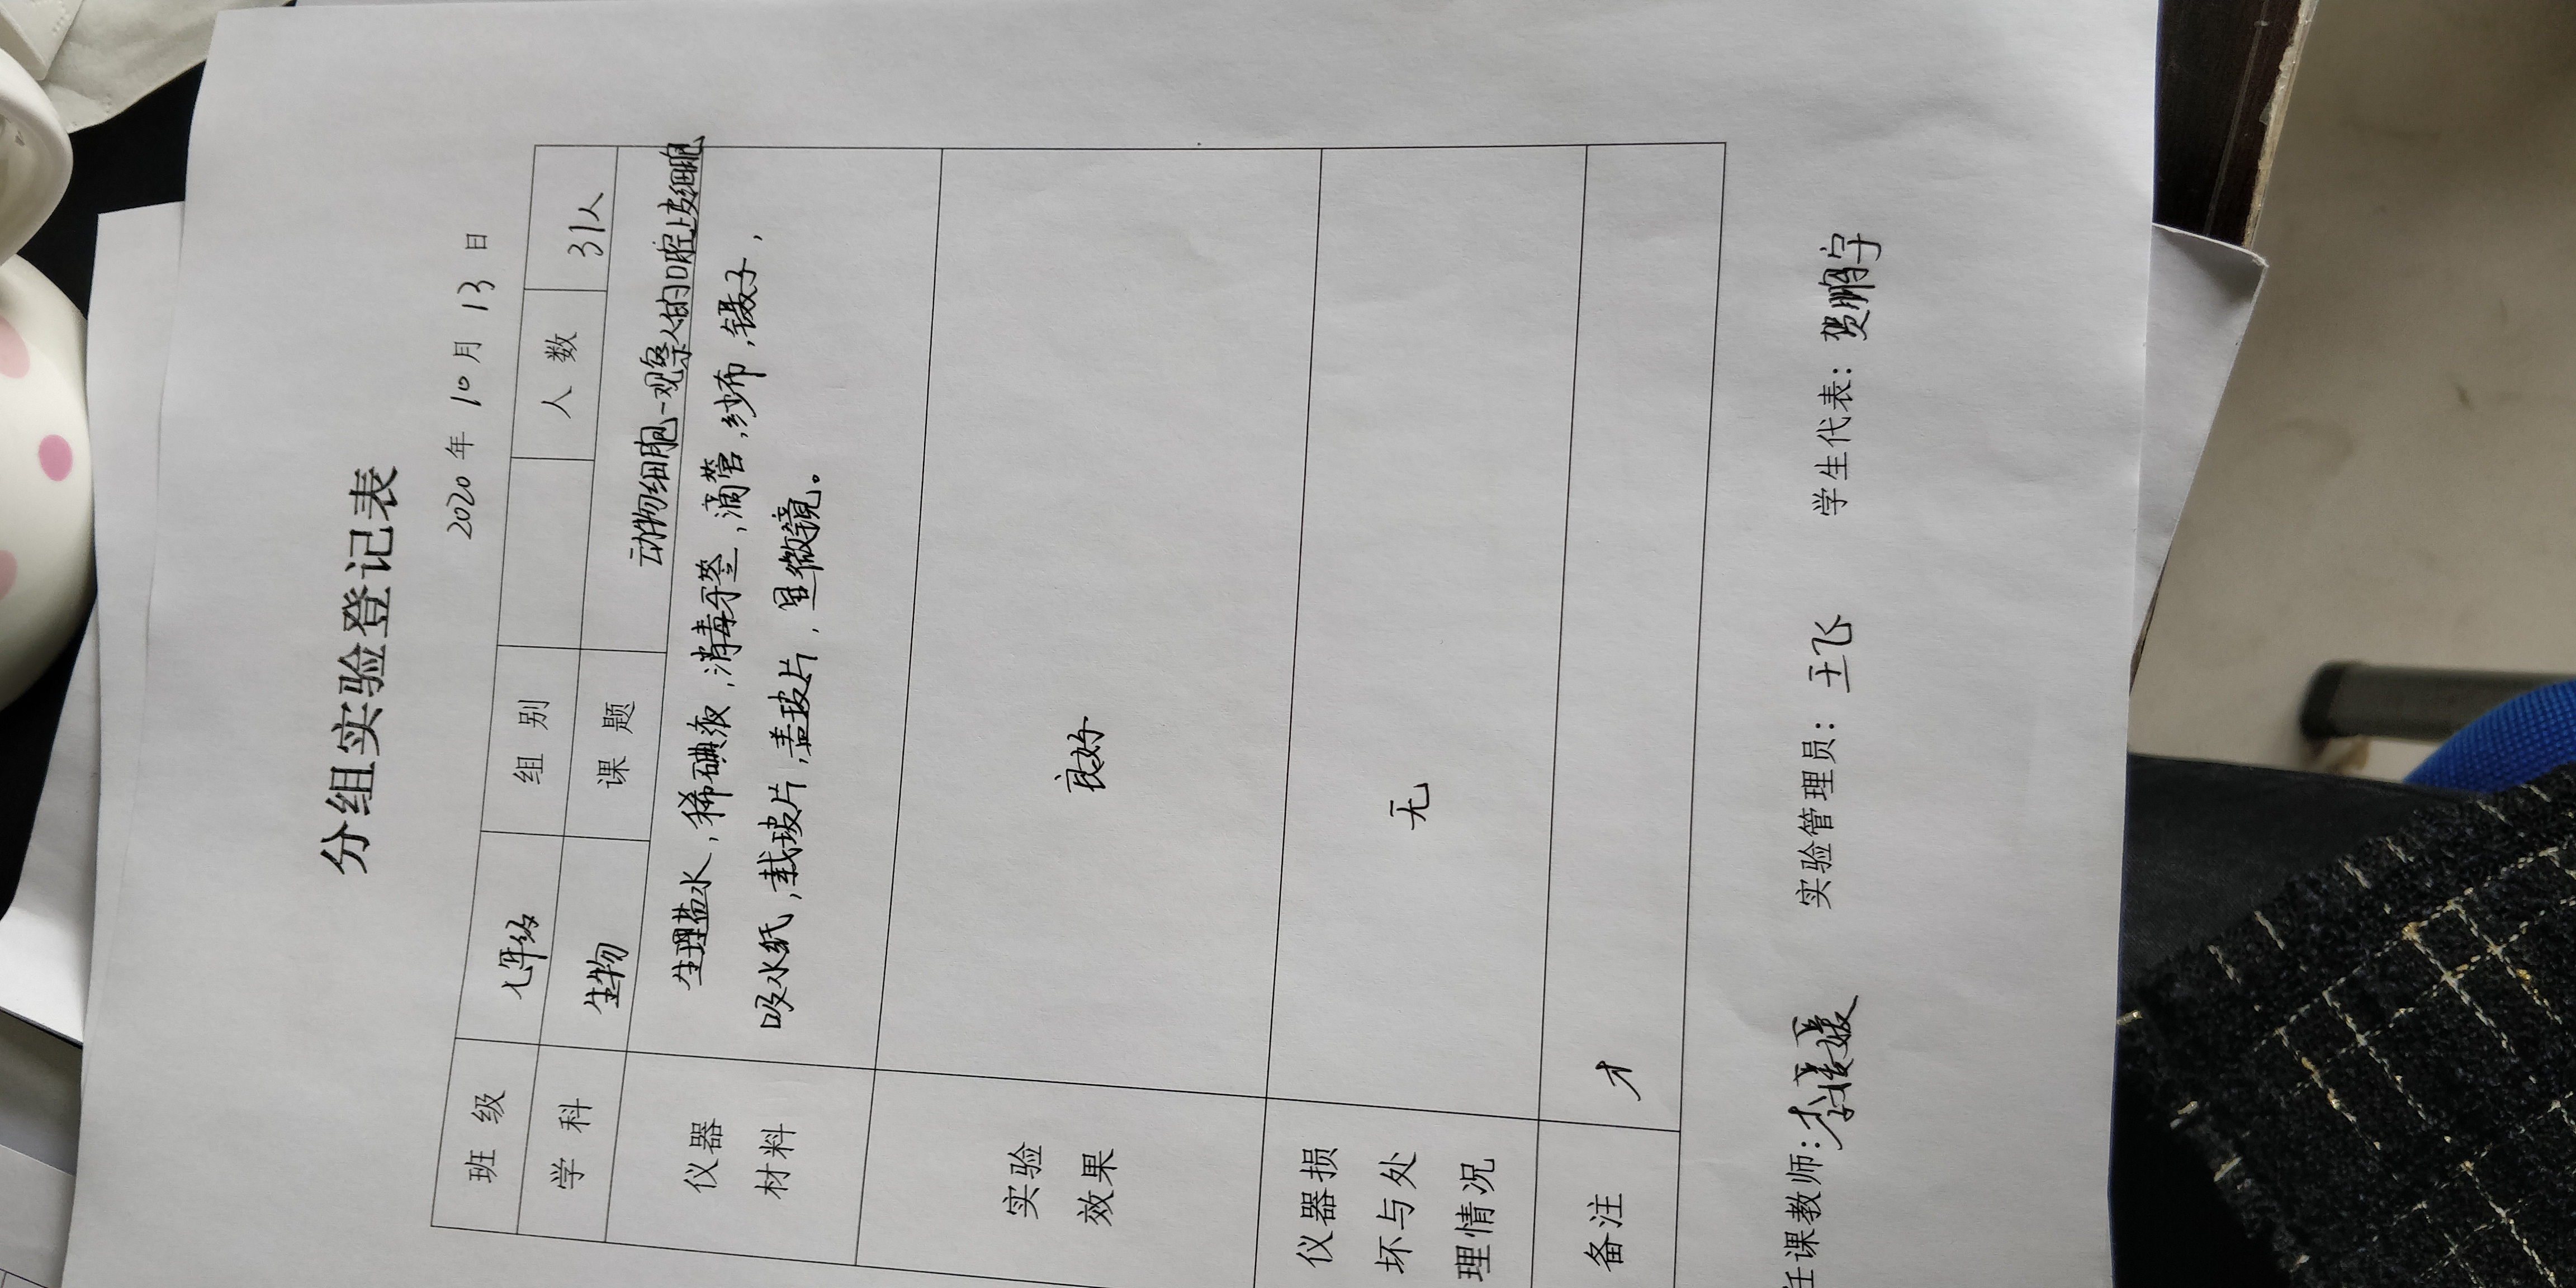 分组实验登记表
2020 年 10 月 13 日
班 级 七年级 组 别 人 数 31人
学 科 生物 课 题 动物细胞-观察人的口腔上皮细胞
仪器
材料
生理盐水,稀碘液,消毒牙签,滴管,纱布,镊子,
吸水纸,载玻片,盖玻片,显微镜。
实验
效果
良好
仪器损
坏与处
理情况
无
备注
任课教师: 实验管理员: 王飞 学生代表: 贺鹏宇